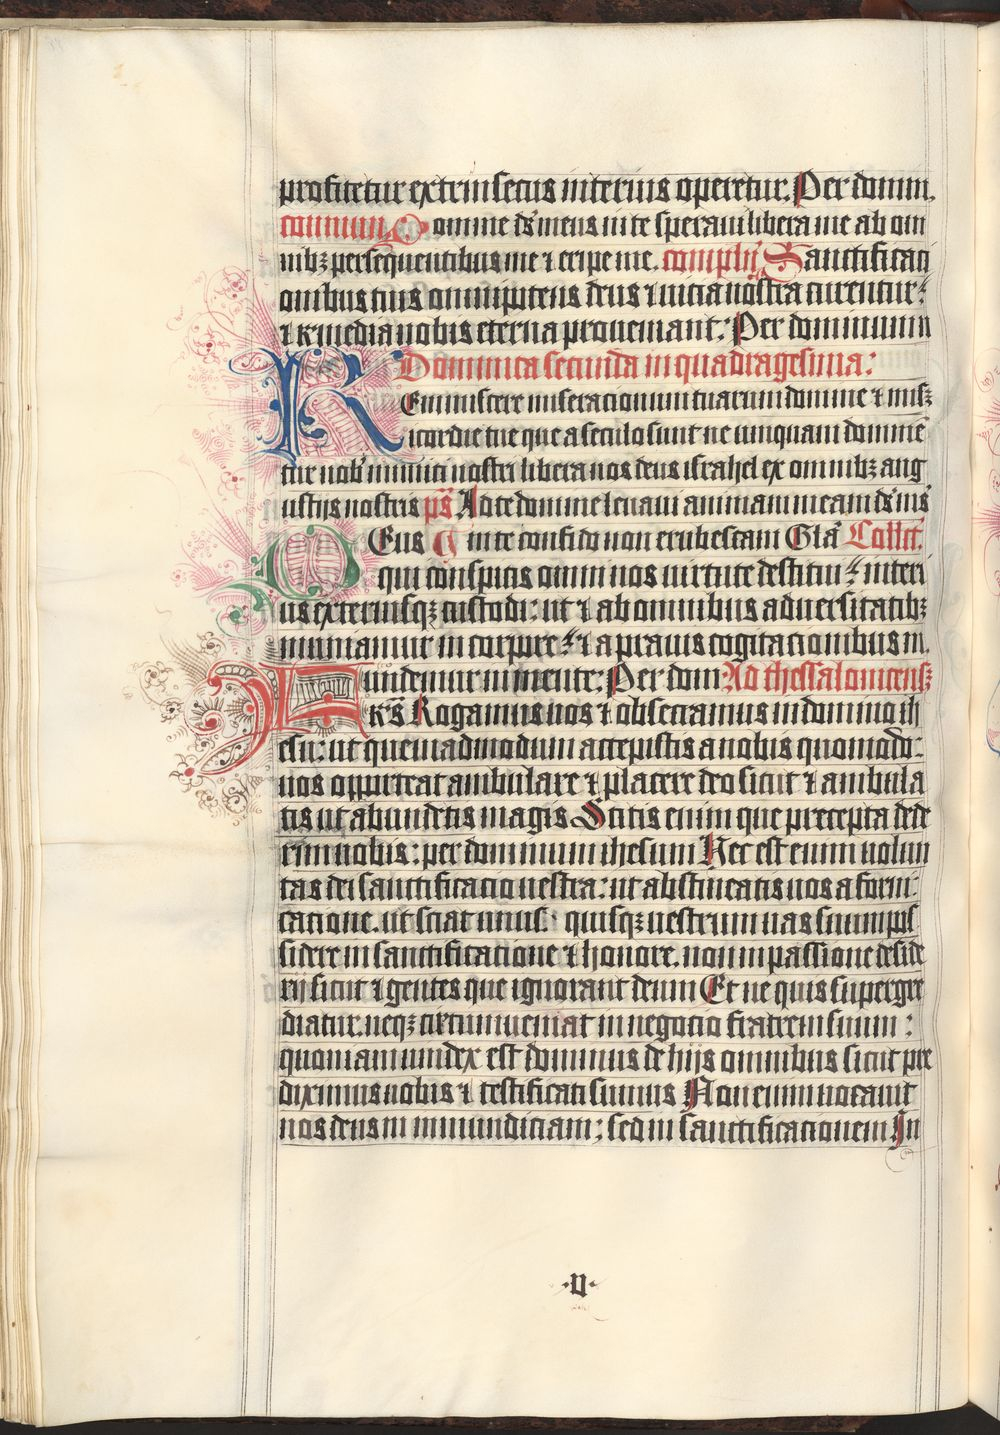 profitetur extrinsecus interius operetur. Per domin.
commun. Domine ds meus in te speraui libera me ab om
nibꝫ persequentibus me ⁊ eripe me. complꝫ Sanctificaci
onibus tuis omniptens deus ⁊ uicia nostra curentur:
⁊ remedia nobis eterna proueniant: Per dominum
Dominica secunda in quadragesima:
Reminiscere miseracionum tuarum domine ⁊ misꝫ
ricordie tue que a seculo sunt ne umquam domine
tur nob inimici nostri libera nos deus israhel ex omnibꝫ ang
ustiis nostris ps Ad te domine leuaui animam meam ds ms
DEus in te confido non erubescam Gla Collct.
qui conspicis omni nos uirtute destitui: interi
us exteriusqꝫ custodi: ut ⁊ ab omnibus aduersitatibꝫ
muniamur in corpore: ⁊ a prauis cogitacionibus m.
undemur in mente: Per dom Ad thessalonicensꝫ
Frs Rogamus uos ⁊ obsecramus in domino ih
esu: ut quemadmodum accepistis a nobis quomodo:
uos opporteat ambulare ⁊ placere deo sicut ⁊ ambula
tis ut abundetis magis Scitis enim que precepta dede
rim uobis: per dominum ihesum Hec est enim uolun
tas dei sanctificacio uestra: ut abstineatis uos a forni:
catione. ut sciat unus: quisqꝫ uestrum uas suum pos
sidere in sanctificatione ⁊ honore. non in passione deside
rij sicut ⁊ gentes que ignorant deum Et ne quis supergre
diatur. neqꝫ circumueniat in negocio fratrem suum:
quoniam uindex est dominus de hijs omnibus sicut pre
diximus uobis ⁊ testificati sumus Non enim uocauit
nos deus in inmundiciam: sed in sanctificacionem In
·II·